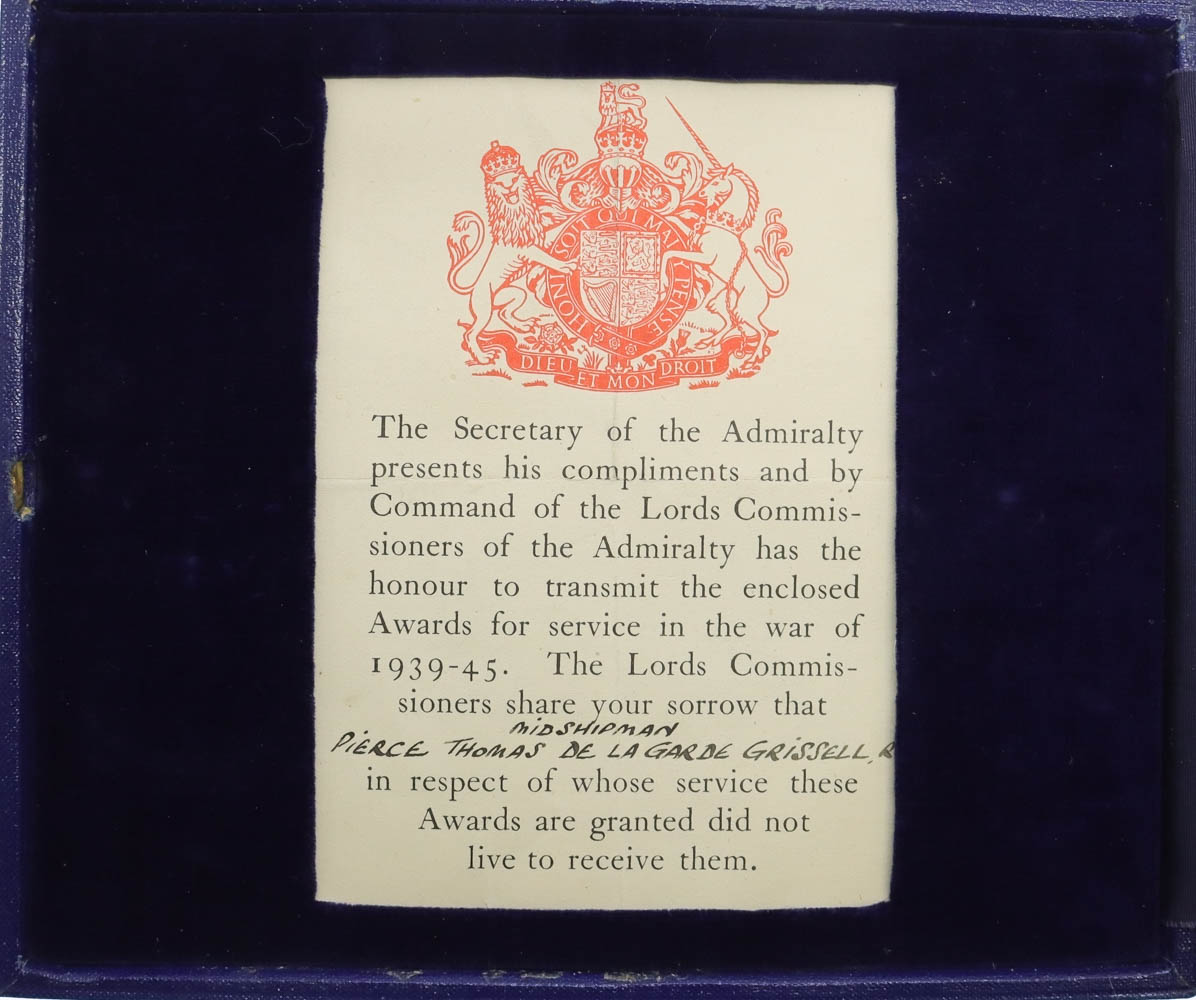 HONI SOI QUI MAL Y PENSE
DIEU ET MON DROIT
The Secretary of the Admiralty
presents his compliments and by
Command of the Lords Commis-
sioners of the Admiralty has the
honour to transmit the enclosed
Awards for service in the war of
1939-45. The Lords Commis-
sioners share your sorrow that
MIDSHIPMAN
PIERCE THOMAS DE LA GARDE GRISSELL, R
in respect of whose service these
Awards are granted did not
live to receive them.